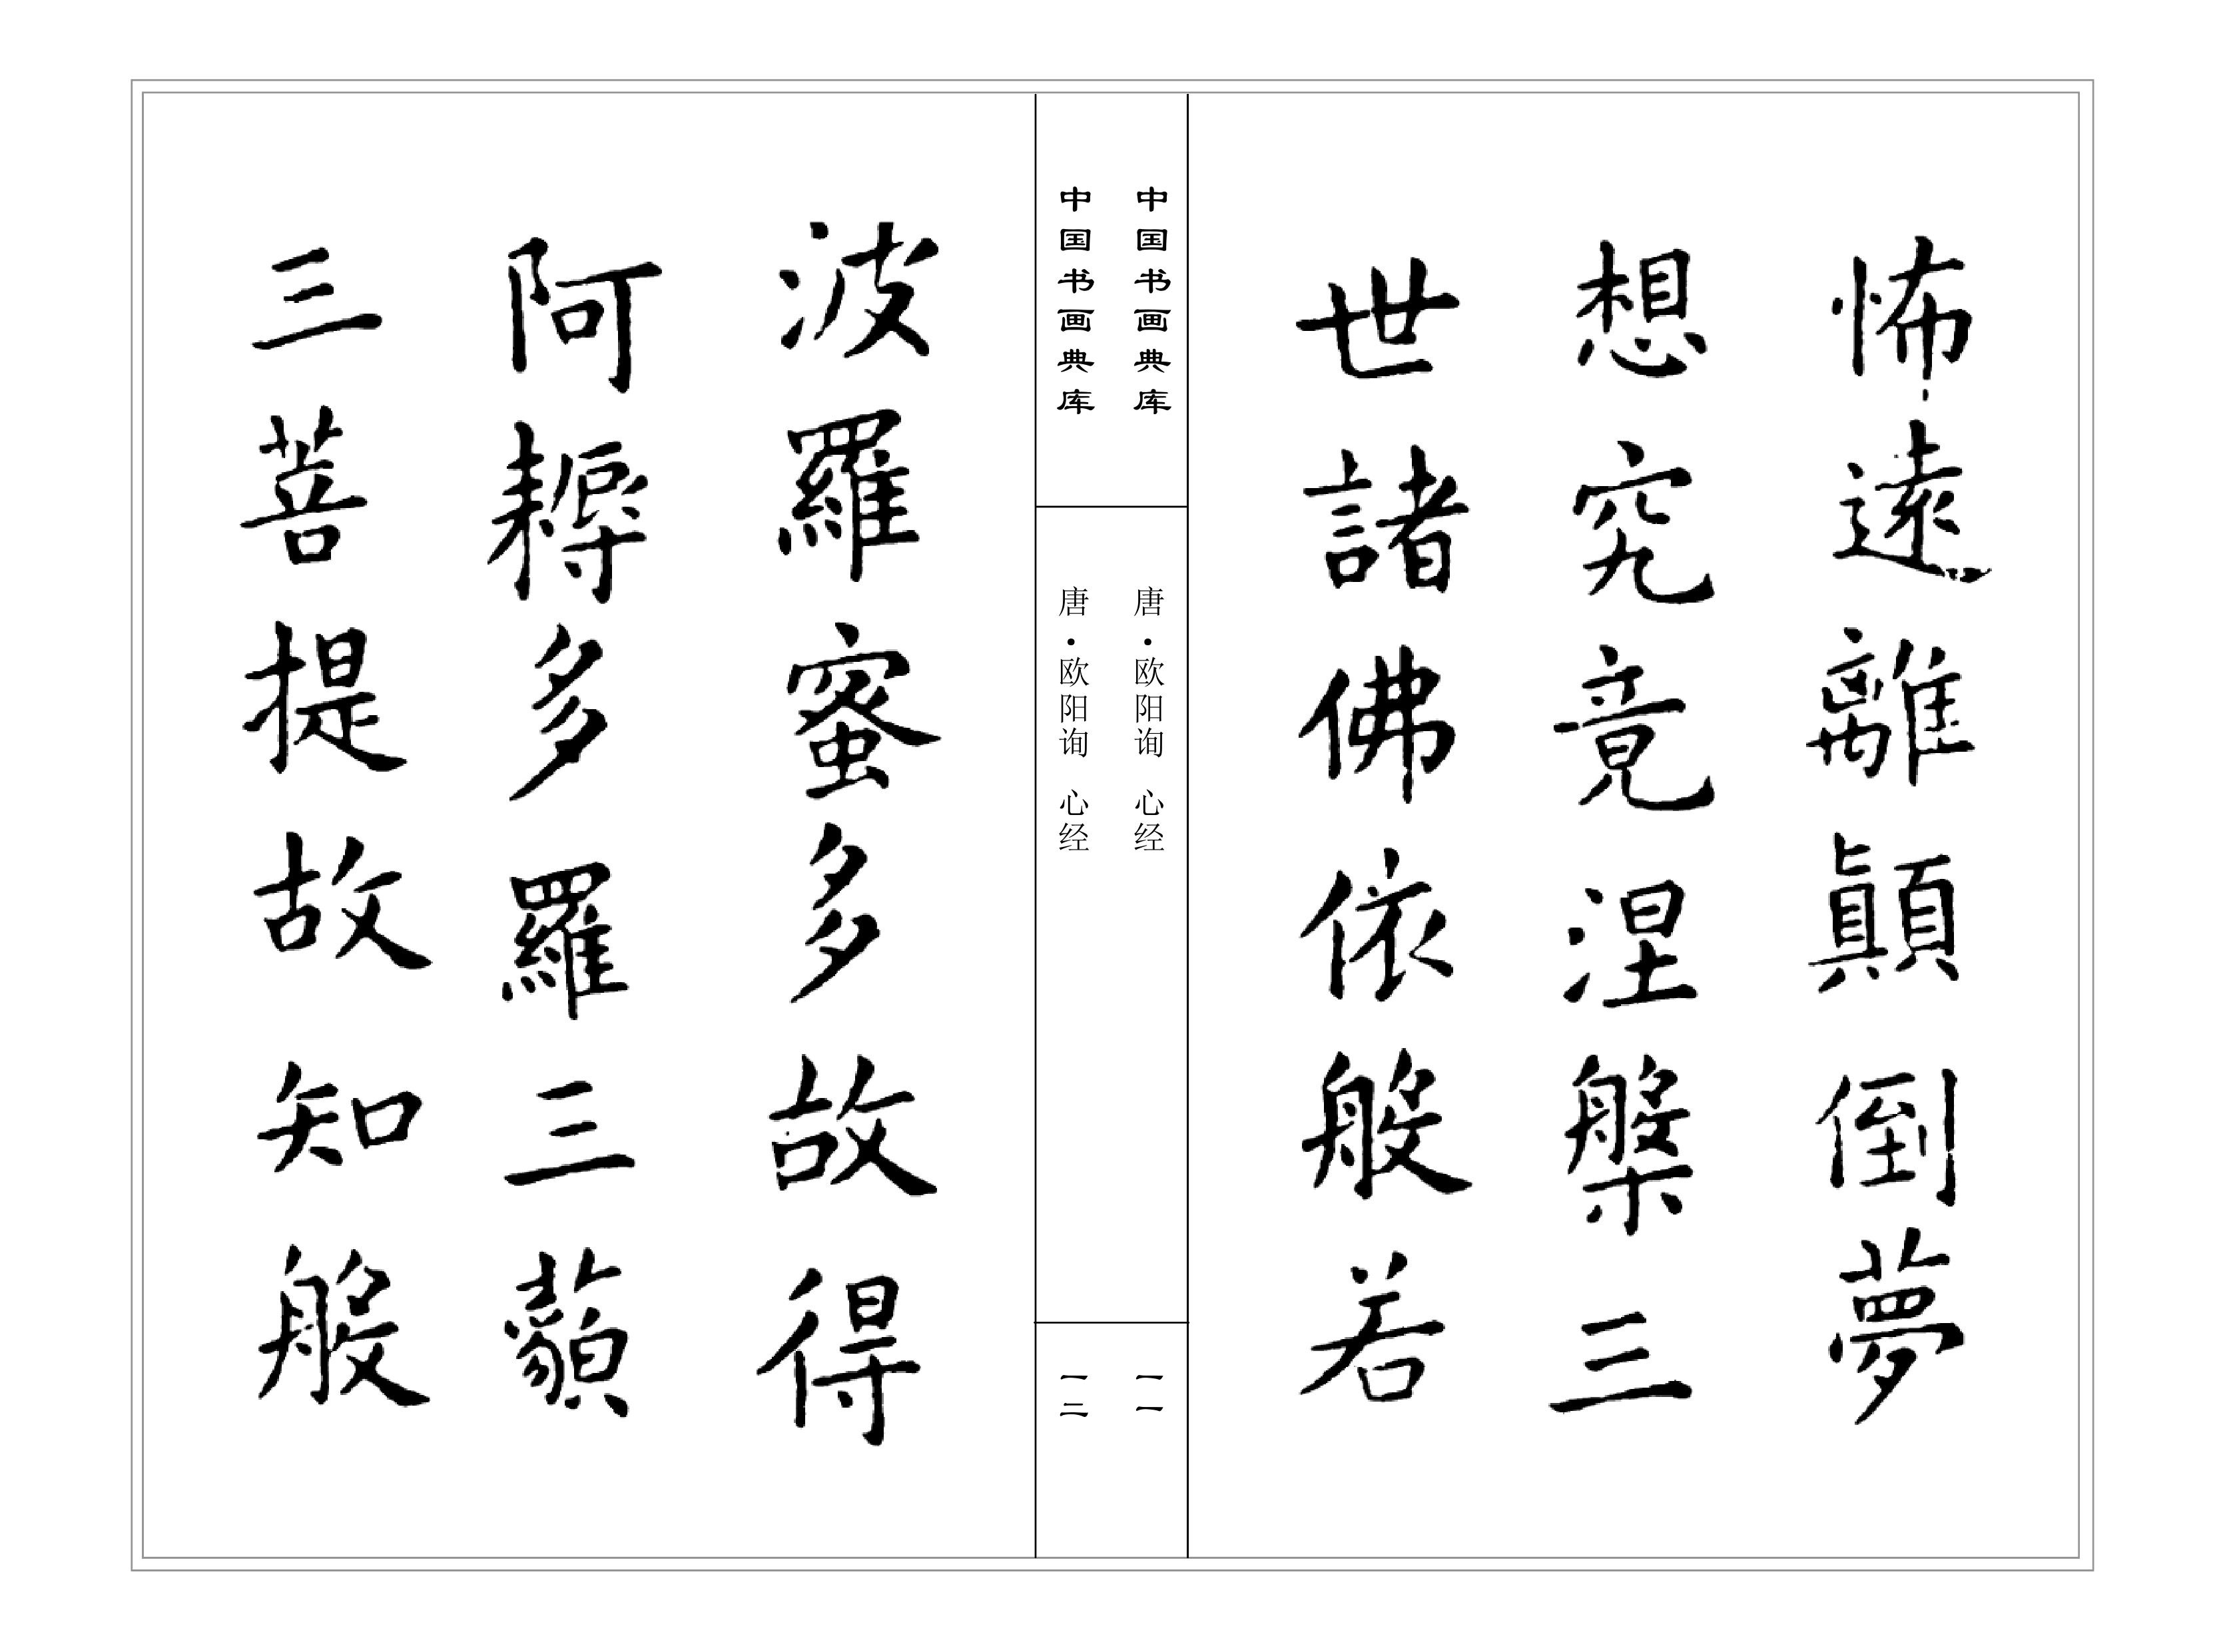 怖遠離顛倒夢
想究竟涅槃三
世諸佛依般若
中国书画典库
唐·欧阳询 心经
一一
中国书画典库
唐·欧阳询 心经
一二
波羅蜜多故得
阿耨多羅三藐
三菩提故知般